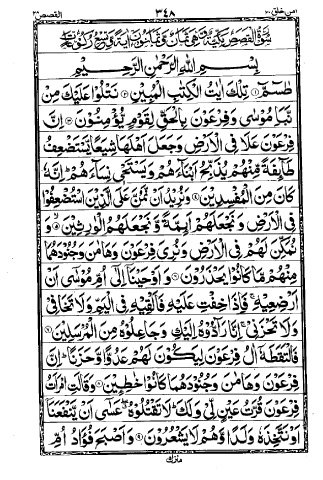 القصص ٢٨
٣٤٨
امن خلق ٢٠
سورة القصص مكية وهي ثمان وثمانون اية وتسع ركوعات
بِسْمِ اللهِ الرَّحْمٰنِ الرَّحِيْمِ
طٰسٓمّٓ ۝ تِلْكَ اٰيٰتُ الْكِتٰبِ الْمُبِيْنِ ۝ نَتْلُوْا عَلَيْكَ مِنْ
نَّبَاِ مُوْسٰى وَفِرْعَوْنَ بِالْحَقِّ لِقَوْمٍ يُّؤْمِنُوْنَ ۝ اِنَّ
فِرْعَوْنَ عَلَا فِى الْاَرْضِ وَجَعَلَ اَهْلَهَا شِيَعًا يَّسْتَضْعِفُ
طَآئِفَةً مِّنْهُمْ يُذَبِّحُ اَبْنَآءَهُمْ وَيَسْتَحْىٖ نِسَآءَهُمْ اِنَّهٗ
كَانَ مِنَ الْمُفْسِدِيْنَ ۝ وَنُرِيْدُ اَنْ نَّمُنَّ عَلَى الَّذِيْنَ اسْتُضْعِفُوْا
فِى الْاَرْضِ وَنَجْعَلَهُمْ اَئِمَّةً وَّنَجْعَلَهُمُ الْوٰرِثِيْنَ ۝ وَ
نُمَكِّنَ لَهُمْ فِى الْاَرْضِ وَنُرِىَ فِرْعَوْنَ وَهَامٰنَ وَجُنُوْدَهُمَا
مِنْهُمْ مَّا كَانُوْا يَحْذَرُوْنَ ۝ وَاَوْحَيْنَآ اِلٰٓى اُمِّ مُوْسٰٓى اَنْ
اَرْضِعِيْهِ فَاِذَا خِفْتِ عَلَيْهِ فَاَلْقِيْهِ فِى الْيَمِّ وَلَا تَخَافِىْ
وَلَا تَحْزَنِىْ اِنَّا رَآدُّوْهُ اِلَيْكِ وَجَاعِلُوْهُ مِنَ الْمُرْسَلِيْنَ ۝
فَالْتَقَطَهٗٓ اٰلُ فِرْعَوْنَ لِيَكُوْنَ لَهُمْ عَدُوًّا وَّحَزَنًا اِنَّ
فِرْعَوْنَ وَهَامٰنَ وَجُنُوْدَهُمَا كَانُوْا خٰطِئِيْنَ ۝ وَقَالَتِ امْرَاَتُ
فِرْعَوْنَ قُرَّتُ عَيْنٍ لِّىْ وَلَكَ لَا تَقْتُلُوْهُ عَسٰٓى اَنْ يَّنْفَعَنَآ
اَوْ نَتَّخِذَهٗ وَلَدًا وَّهُمْ لَا يَشْعُرُوْنَ ۝ وَاَصْبَحَ فُؤَادُ اُمِّ
منزل